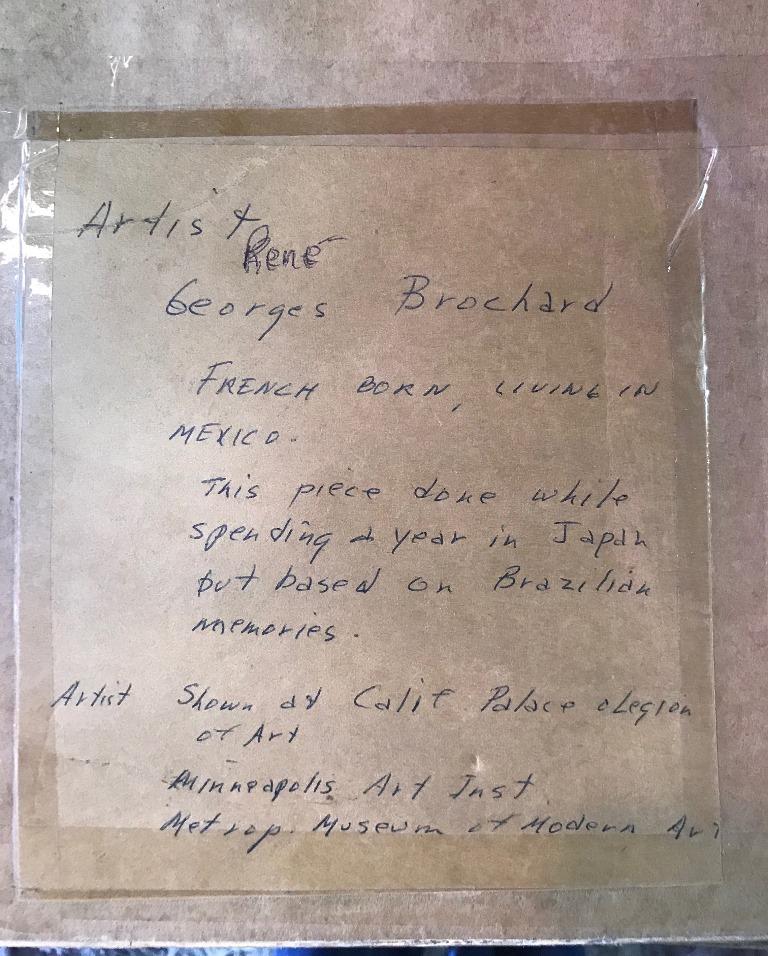 Artist
René
Georges Brochard
FRENCH BORN, LIVING IN
MEXICO.
This piece done while
spending a year in Japan
but based on Brazilian
memories.
Artist Shown at Calif Palace oLegion
of Art
Minneapolis Art Inst
Metrop. Museum of Modern Art